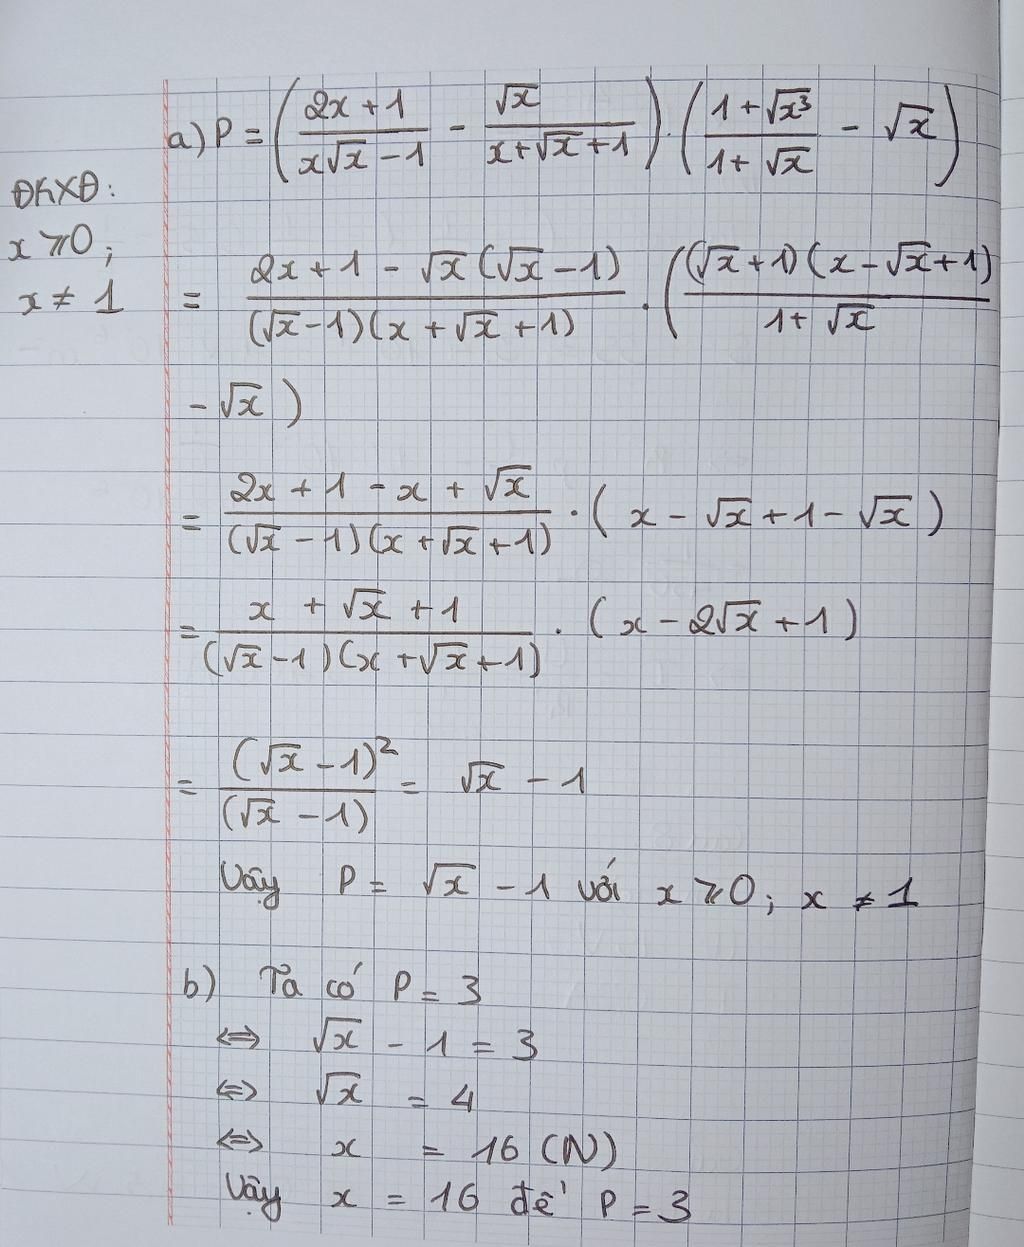 a) P = ( (2x + 1)/(x√x - 1) - √x/(x + √x + 1) ) . ( (1 + √x³)/(1 + √x) - √x )
ĐKXĐ:
x ⩾ 0 ;
x ≠ 1
= (2x + 1 - √x (√x - 1))/((√x - 1)(x + √x + 1)) . ( ((√x + 1)(x - √x + 1))/(1 + √x)
- √x )
= (2x + 1 - x + √x)/((√x - 1)(x + √x + 1)) . ( x - √x + 1 - √x )
= (x + √x + 1)/((√x - 1)(x + √x + 1)) . (x - 2√x + 1)
= (√x - 1)²/(√x - 1) = √x - 1
Vậy P = √x - 1 với x ⩾ 0 ; x ≠ 1
b) Ta có P = 3
⇔ √x - 1 = 3
⇔ √x = 4
⇔ x = 16 (N)
Vậy x = 16 để P = 3